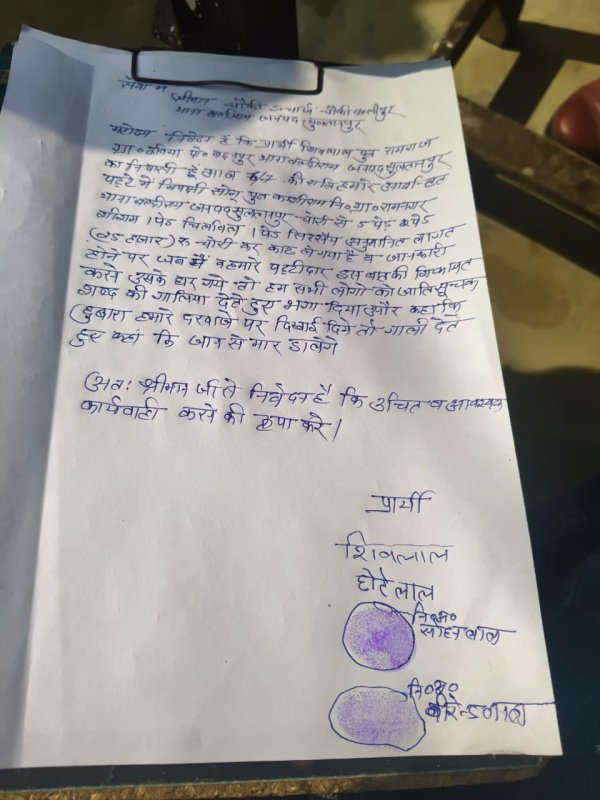 सेवा में
श्रीमान चौकी इन्चार्ज चौकी वल्लीपुर
थाना बल्दीराय जनपद सुलतानपुर
महोदय निवेदन है कि प्रार्थी शिवलाल पुत्र रामराज
ग्रा० पो० थाना बल्दीराय जनपद सुलतानपुर
का निवासी है आज 6/7 की रात्रि हमारे
पट्टे में विपक्षी सोनू पुत्र काशीराम नि० ग्रा० रामनगर
थाना बल्दीराय जनपद सुलतानपुर चोरी से 5 पेड़
1 पेड़ चिलविल 1 पेड़ सिरसैय अनुमानित लागत
हजार) रु० चोरी कर काट ले गया है व जानकारी
होने पर जब मैं व हमारे पट्टीदार इस बात की शिकायत
करने उसके घर गये तो हम सभी लोगो को जातिसूचक
शब्द की गालिया देते हुए भगा दिया और कहा कि
दुबारा हमारे दरवाजे पर दिखाई दिये तो गाली देते
हुए कहा कि जान से मार डालेंगे
अतः श्रीमान जी से निवेदन है कि उचित व आवश्यक
कार्यवाही करने की कृपा करे।
प्रार्थी
शिवलाल
छोटेलाल
नि०अ०
सोहनलाल
नि०अ०